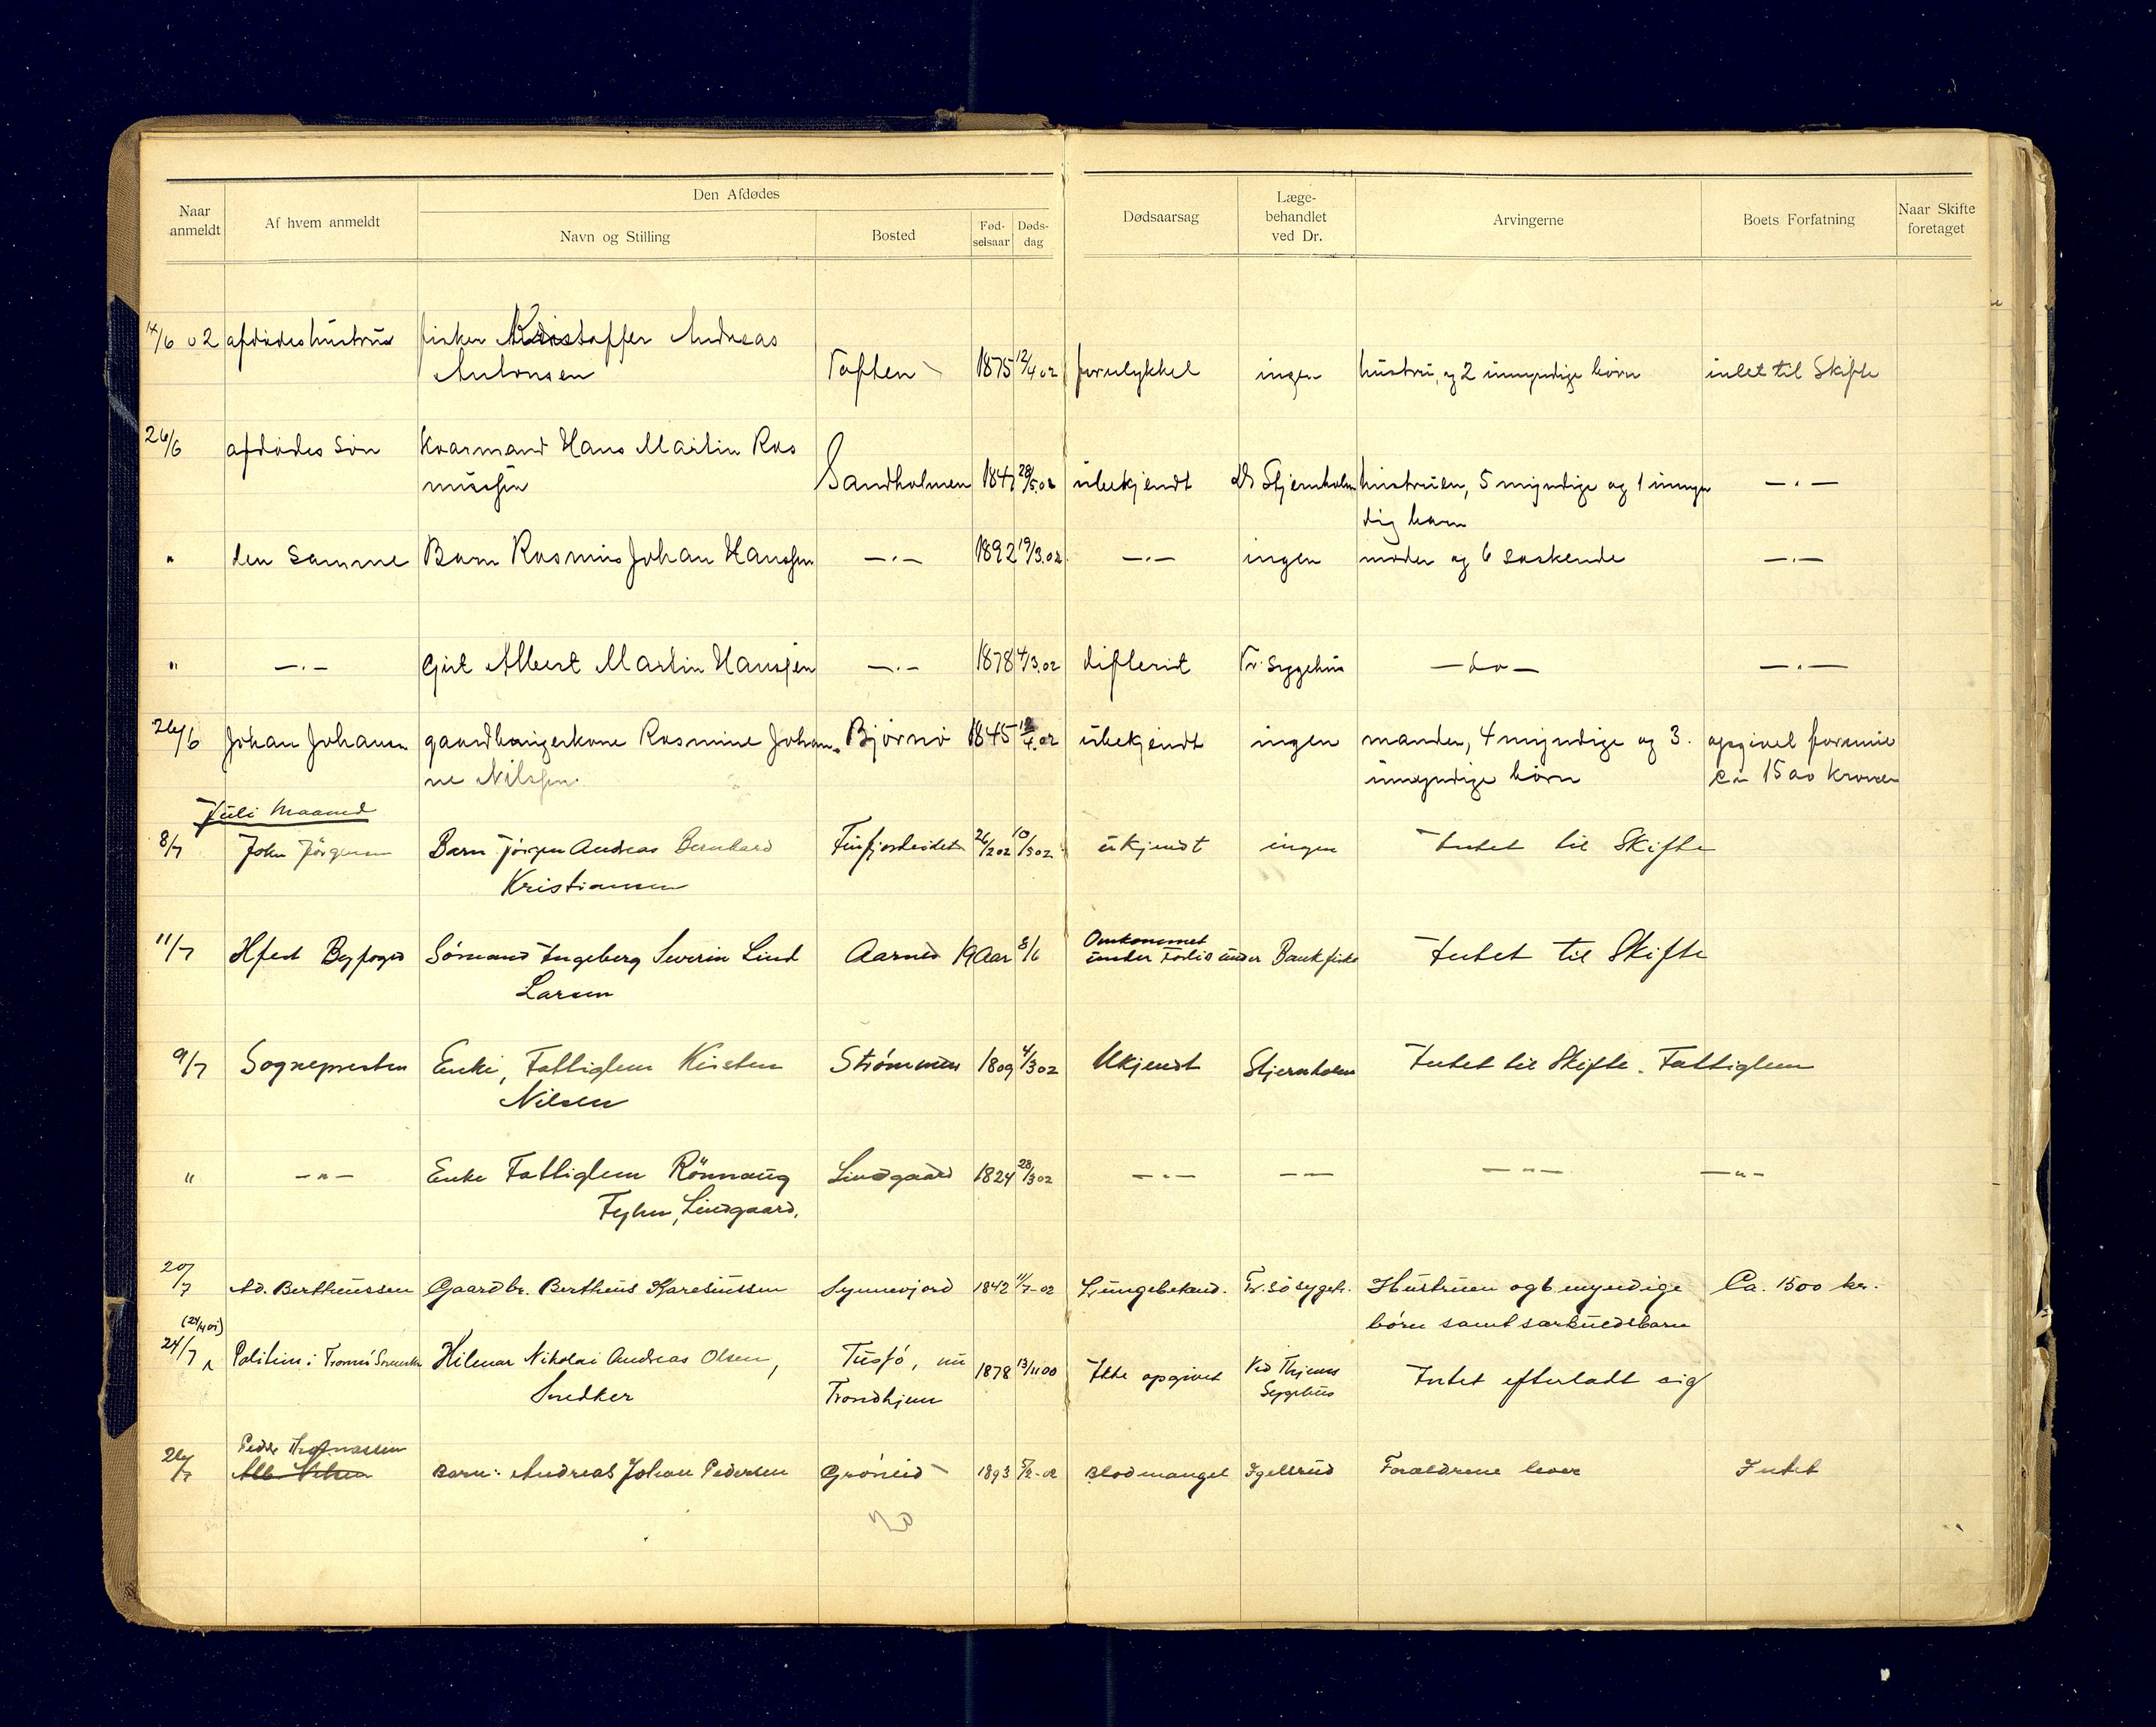 Naar anmeldt
Af hvem anmeldt
Den Afdødes
Navn og Stilling
Bosted
Fød- selsaar
Døds- dag
Dødsaarsag
Læge- behandlet ved Dr.
Arvingerne
Boets Forfatning
Naar Skifte foretaget
14/6 02 afdødes hustru fisker Kristoffer Andreas
Antonsen Toften 1875 12/4 02 forulykket ingen hustru, og 2 umyndige børn intet til Skifte
26/6 afdødes søn Kvarmand Hans Martin Ras
mussen Sandholmen 1847 28/5.02 ubekjendt dr Stjernholm hustruen, 5 myndige og 1 umyn
dig barn —„—
" den samme Barn Rasmus Johan Hanssen —„— 1892 19/3.02 —„— ingen moder og 6 søskende —„—
" —„— Gut Albert Martin Hanssen —„— 1878 4/3.02 difterit Tr. Sygehus — do — —„—
26/6 Johan Johansen gaardbrugerkone Rasmine Johan-
ne Nilssen Bjørnø 1845 /4.02 ubekjendt ingen manden, 4 myndige og 3
umyndige børn opgivet formue
ca 1500 kroner
Juli Maaned
8/7 John Jörgensen Barn Jörgen Andreas Bernhard
Kristiansen Finfjordeidet 26/2 02 10/5 02 ukjendt ingen Intet til Skifte
11/7 Hfest Byfoged Sømand Ingeberg Severin Lind
Larsen Aarnes 19 Aar 8/6 Omkommet
under Forlis under Bankfiske Intet til Skifte
9/7 Sognepresten Enke, Fattiglem Kirsten
Nilsen Strømmen 1809 4/3 02 Ukjendt Stjernholm Intet til Skifte. Fattiglem
" —„— Enke Fattiglem Rönnaug
Fyhn, Lindgaard. Lindgaard 1824 28/3 02 —„— — — —„— —„—
20/7 Ad. Bertheussen Gaardbr. Bertheus Karesiussen Lynnevjord 1842 11/7-02 Lungebetænd. Tr.sø sygeh. Hustruen og 6 myndige
børn samt særkuldsbarn Ca. 1500 kr.
(24/4 01)
24/7 Politiem. i Tromsø Hilmar Nikolai Andreas Olsen,
Snedker Tusfö, nu
Trondhjem 1878 13/11 00 Ikke opgivet Ved Thjems
Sygehus Intet efterladt sig
Peder
26/7 Alb Nilsen Barn: Andreas Johan Pedersen Grönlid 1893 5/2-02 Blodmangel Igelsrud Forældrene lever Intet